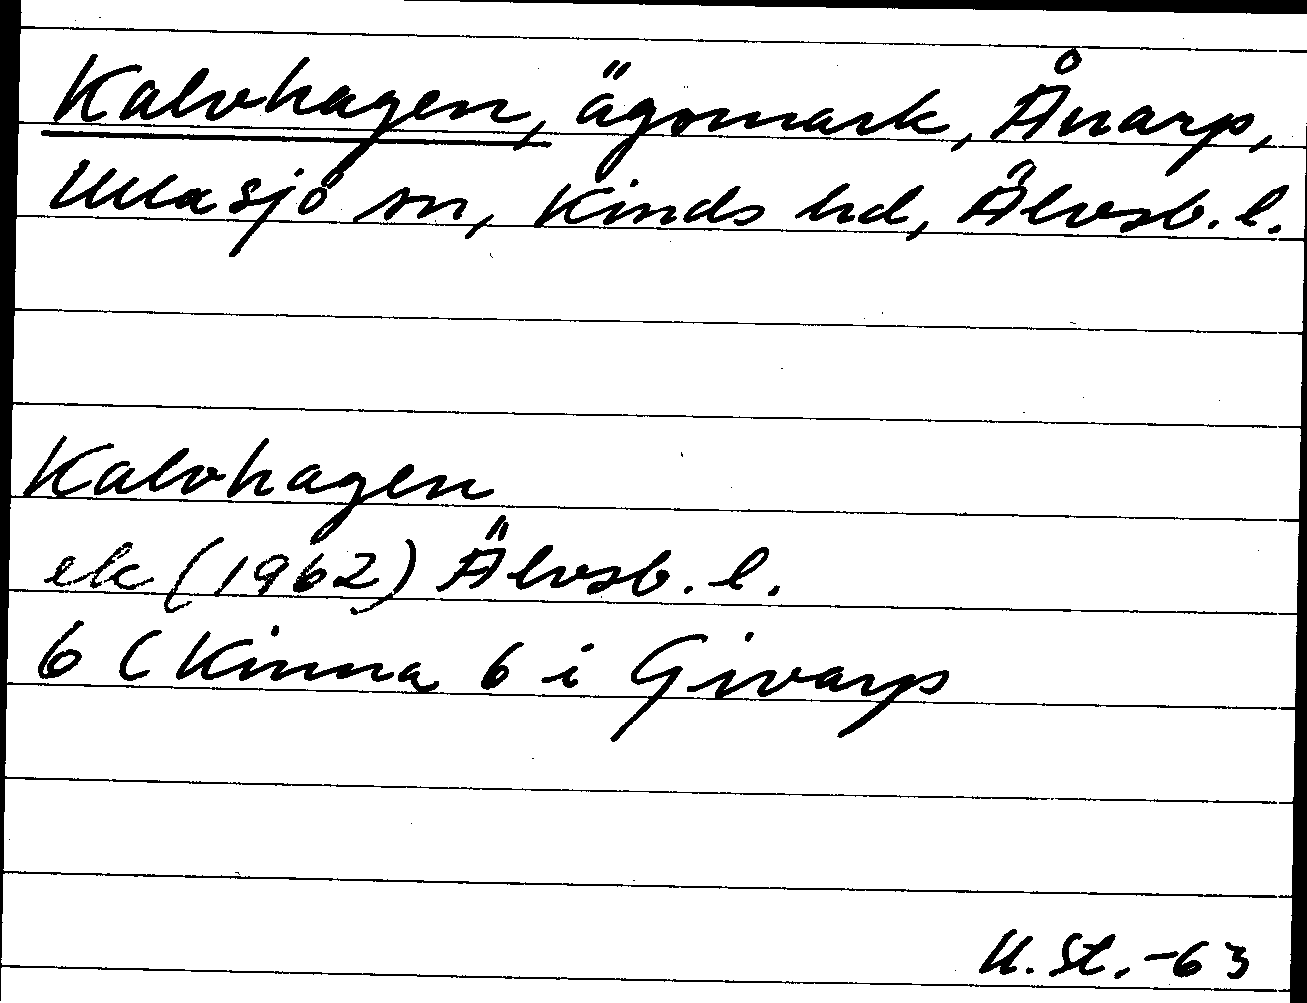 Kalvhagen, ägomark, Ånarp,
Ullasjö sn, Kinds hd, Älvsb. l.
Kalvhagen
ek (1962) Älvsb. l.
6 C Kinna 6 i Givarp
U. St. -63